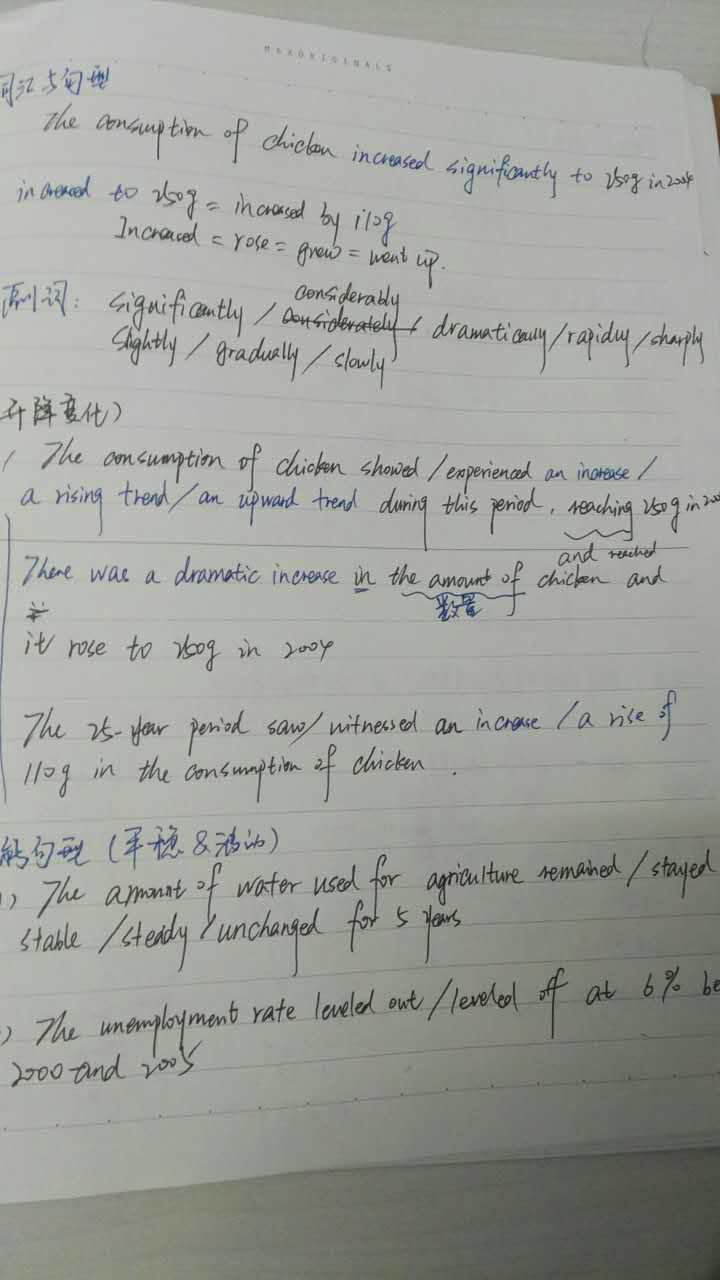 MAXORIGINALS
词汇与句型
The consumption of chicken increased significantly to 250g in 2004
increased to 250g = increased by 110g
Increased = rose = grew = went up.
considerably
副词: significantly / considerately / dramatically / rapidly / sharply
slightly / gradually / slowly
升降变化)
The consumption of chicken showed / experienced an increase /
a rising trend / an upward trend during this period, reaching 250g in 200
and reached
There was a dramatic increase in the amount of chicken and
数量
it rose to 250g in 2004
The 25-year period saw / witnessed an increase / a rise of
110g in the consumption of chicken.
句型 (平稳 & 波动)
1) The amount of water used for agriculture remained / stayed
stable / steady / unchanged for 5 years
) The unemployment rate leveled out / leveled off at 6% be
2000 and 2005